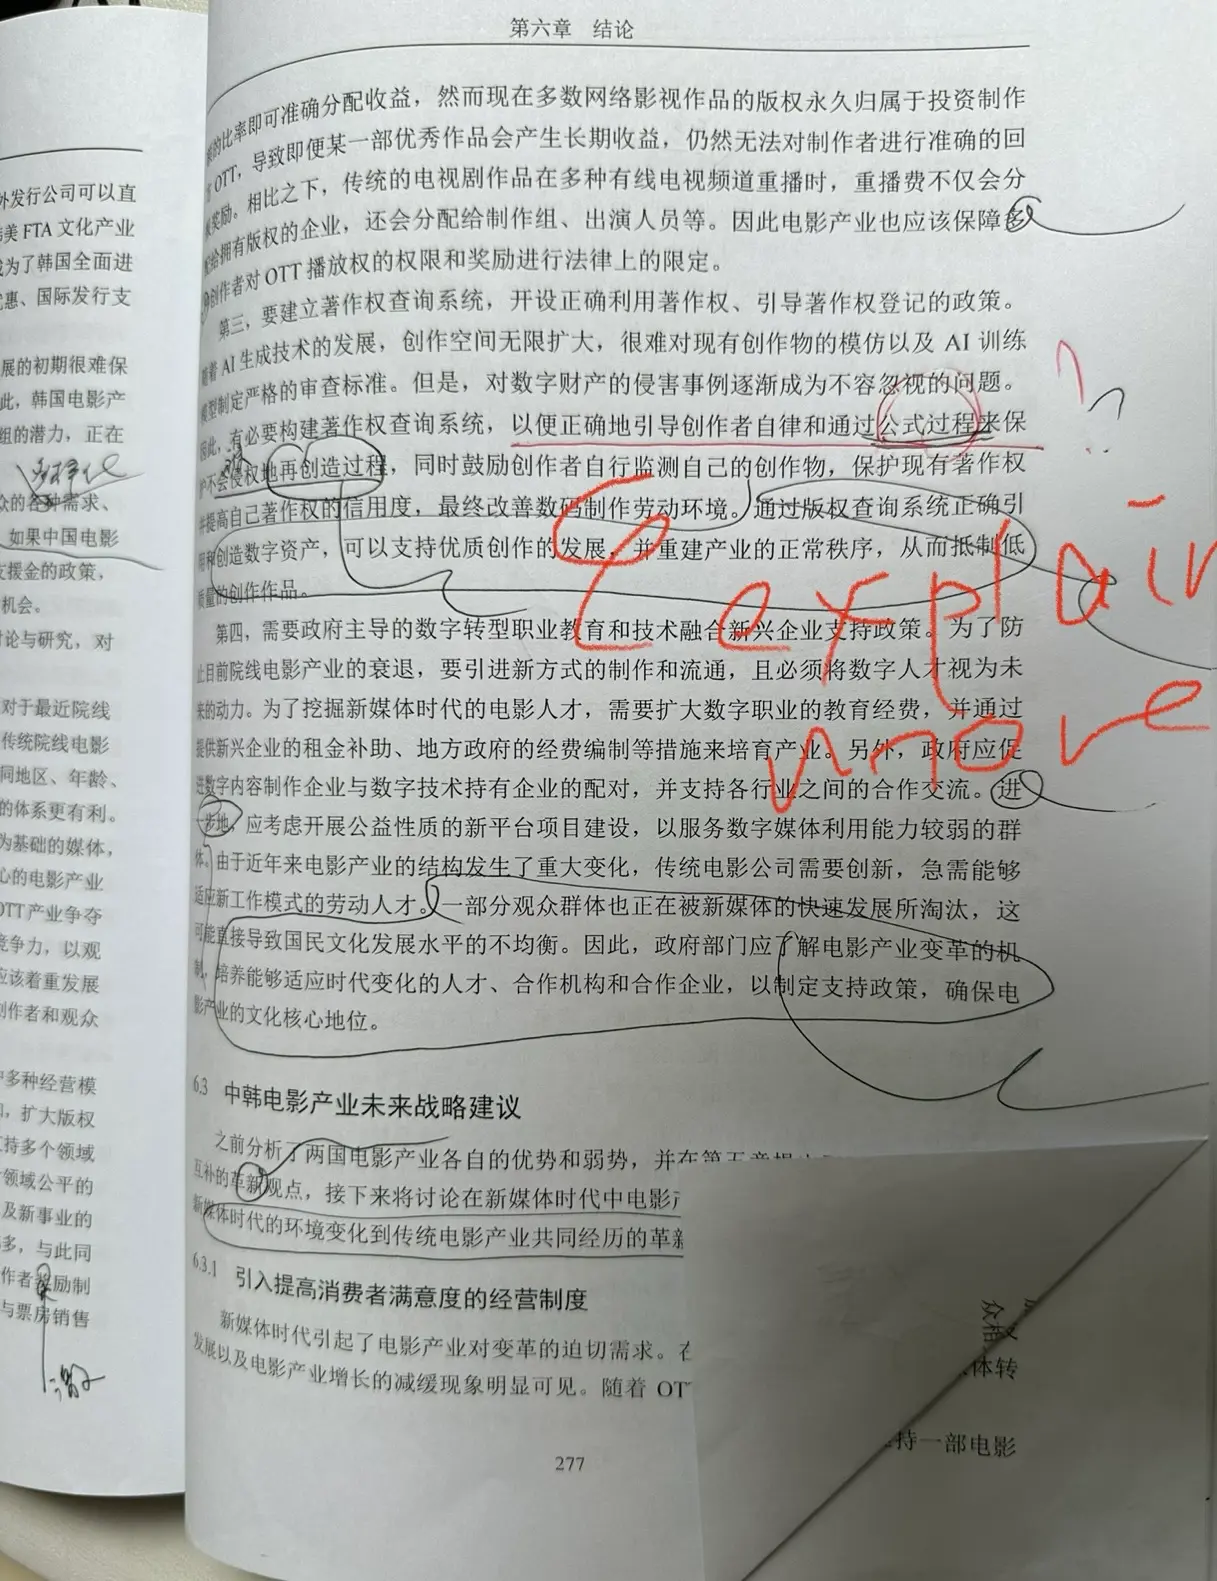 外发行公司可以直
美 FTA 文化产业
成为了韩国全面进
惠、国际发行支
展的初期很难保
此，韩国电影产
组的潜力，正在
众的各种需求、
如果中国电影
支援金的政策，
机会。
讨论与研究，对
对于最近院线
传统院线电影
同地区、年龄、
的体系更有利。
为基础的媒体，
心的电影产业
OTT产业争夺
竞争力，以观
应该着重发展
创作者和观众
多种经营模
，扩大版权
持多个领域
领域公平的
及新事业的
多，与此同
作者奖励制
与票房销售
第六章 结论
的比率即可准确分配收益，然而现在多数网络影视作品的版权永久归属于投资制作
OTT，导致即便某一部优秀作品会产生长期收益，仍然无法对制作者进行准确的回
奖励。相比之下，传统的电视剧作品在多种有线电视频道重播时，重播费不仅会分
配给拥有版权的企业，还会分配给制作组、出演人员等。因此电影产业也应该保障
创作者对 OTT 播放权的权限和奖励进行法律上的限定。
第三，要建立著作权查询系统，开设正确利用著作权、引导著作权登记的政策。
随着 AI 生成技术的发展，创作空间无限扩大，很难对现有创作物的模仿以及 AI 训练
模型制定严格的审查标准。但是，对数字财产的侵害事例逐渐成为不容忽视的问题。
因此，有必要构建著作权查询系统，以便正确地引导创作者自律和通过公式过程来保
护不会侵权地再创造过程，同时鼓励创作者自行监测自己的创作物，保护现有著作权
并提高自己著作权的信用度，最终改善数码制作劳动环境。通过版权查询系统正确引
用和创造数字资产，可以支持优质创作的发展，并重建产业的正常秩序，从而抵制低
质量的创作作品。
explain
more
第四，需要政府主导的数字转型职业教育和技术融合新兴企业支持政策。为了防
止目前院线电影产业的衰退，要引进新方式的制作和流通，且必须将数字人才视为未
来的动力。为了挖掘新媒体时代的电影人才，需要扩大数字职业的教育经费，并通过
提供新兴企业的租金补助、地方政府的经费编制等措施来培育产业。另外，政府应促
进数字内容制作企业与数字技术持有企业的配对，并支持各行业之间的合作交流。进
一步地，应考虑开展公益性质的新平台项目建设，以服务数字媒体利用能力较弱的群
体。由于近年来电影产业的结构发生了重大变化，传统电影公司需要创新，急需能够
适应新工作模式的劳动人才。一部分观众群体也正在被新媒体的快速发展所淘汰，这
可能直接导致国民文化发展水平的不均衡。因此，政府部门应了解电影产业变革的机
制，培养能够适应时代变化的人才、合作机构和合作企业，以制定支持政策，确保电
影产业的文化核心地位。
6.3 中韩电影产业未来战略建议
之前分析了两国电影产业各自的优势和弱势，并在第五章提
互补的革新观点，接下来将讨论在新媒体时代中电影产
新媒体时代的环境变化到传统电影产业共同经历的革新
6.3.1 引入提高消费者满意度的经营制度
新媒体时代引起了电影产业对变革的迫切需求。在
发展以及电影产业增长的减缓现象明显可见。随着 OT
体转
持一部电影
277